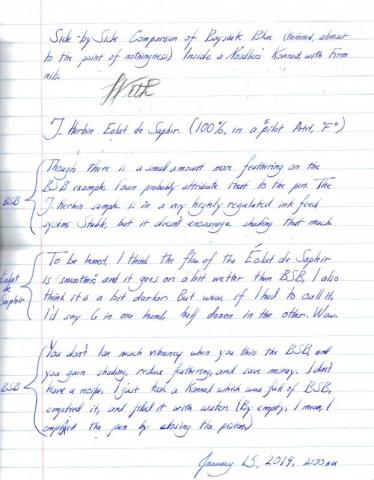 Side-by-Side Comparison of Baystate Blue (thinned, almost
to the point of nothingness) Inside a Noodler's Konrad, with Firm
nib.
J. Herbin Eclat de Saphir. (100%, in a Pilot "F")
Though there is a small amount more feathering on the
BSB example I can probably attribute that to the pen. The
J. Herbin sample is in a very highly regulated ink feed
system; but it doesn't encourage shading that much.
BSB
To be honest, I think the flow of the Éclat de Saphir
is smoother, and it goes on a bit wetter than BSB, I also
think it's a bit darker. But wow, if I had to call it,
I'd say 6 in one hand, half dozen in the other. Wow.
Eclat
de
Saphir
You don't lose much vibrancy when you thin the BSB, and
you gain shading, reduce feathering, and save money. I don't
have a recipe, I just took a Konrad which was full of BSB,
emptied it, and filled it with water. (By empty, I mean, I
emptied the pen by closing the piston)
BSB
January 15, 2014, 2:00 AM